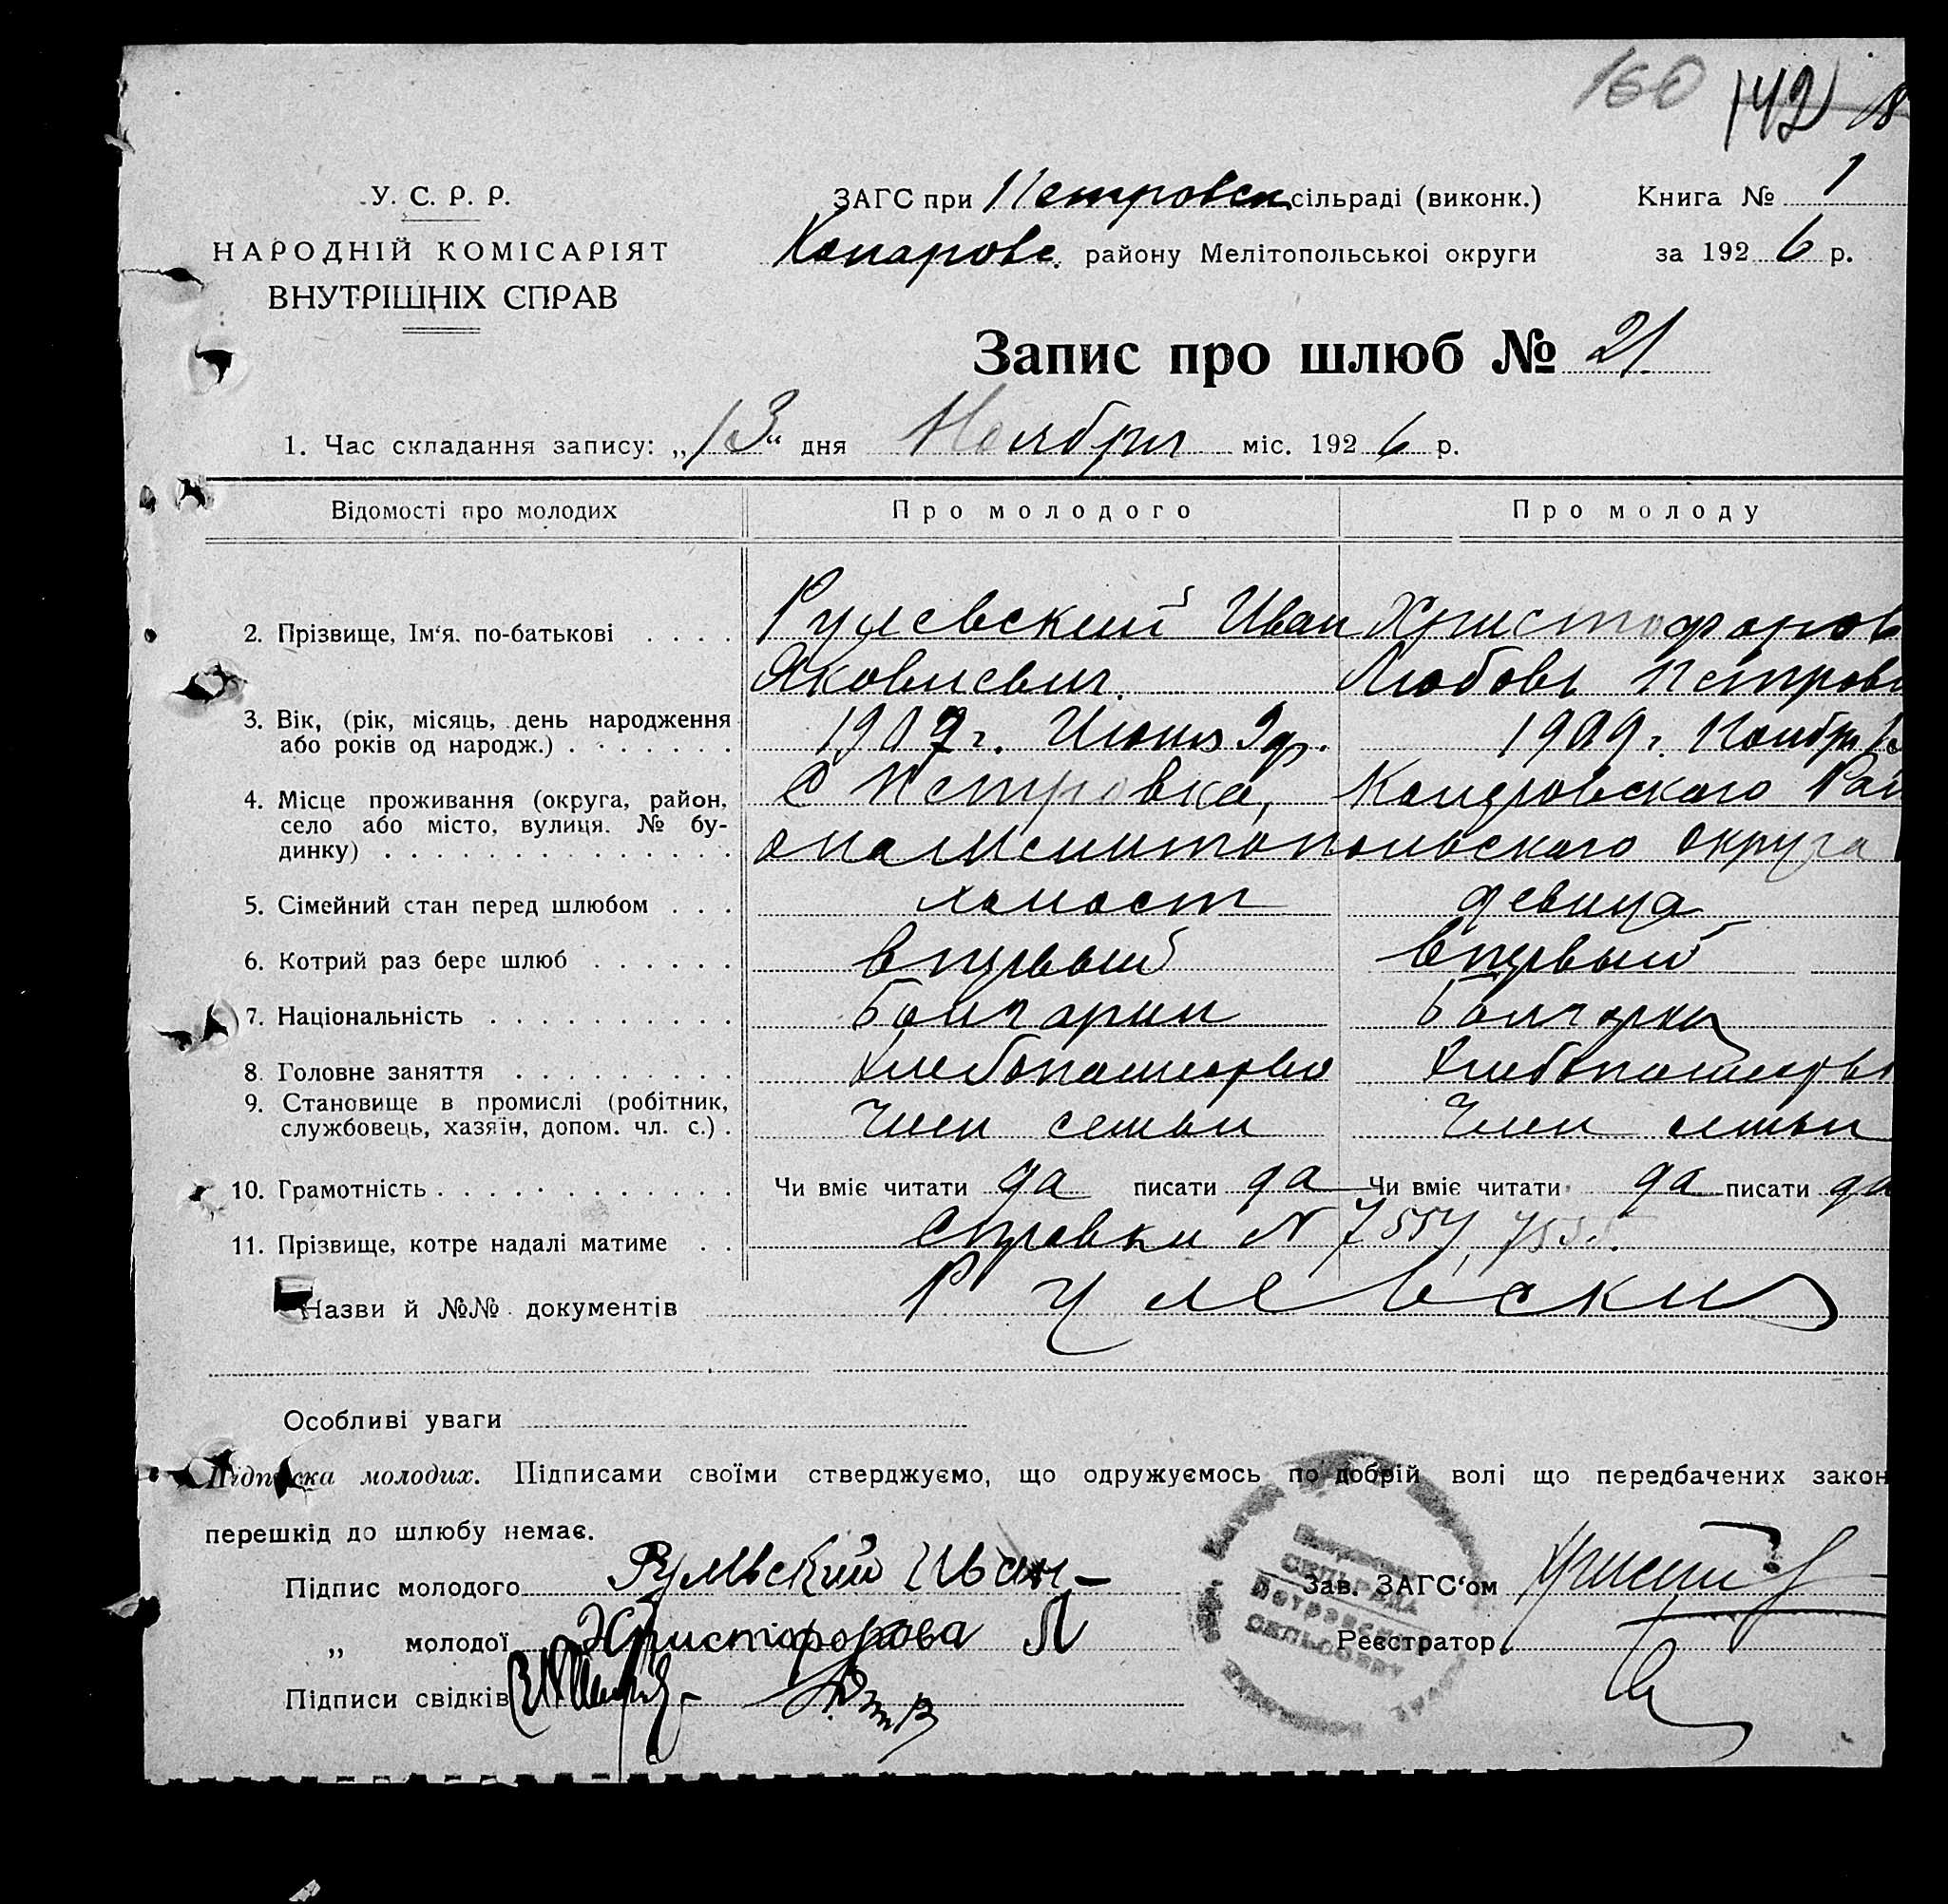 160 142
У. С. Р. Р.
НАРОДНІЙ КОМІСАРІЯТ
ВНУТРІШНІХ СПРАВ
ЗАГС при Петровск сільраді (виконк.)
району Мелітопольської округи
Книга № 1
за 1926 р.
Запис про шлюб № 21
1. Час складання запису: „13“ дня Ноября міс. 1926 р.
Відомості про молодих Про молодого Про молоду
2. Прізвище, Ім'я, по-батькові . . . . Рулевский Иван Христофоров
Яковлевич. Любовь Петров
3. Вік, (рік, місяць, день народження
або років од народж.) . . . . . . 1907 г. Июня 9 д. 1909 г. Ноябр 13
4. Місце проживання (округа, район,
село або місто, вулиця. № бу-
динку) . . . . . . . . . . . . . .
С Петровка, Рай
она Мелитопольского округа
5. Сімейний стан перед шлюбом . . . холост девица
6. Котрий раз бере шлюб . . . . . . впервый впервый
7. Національність . . . . . . . . . . Болгарин Болгарка
8. Головне заняття . . . . . . . . . Хлебопашество Хлебопашеств
9. Становище в промислі (робітник,
службовець, хазяїн, допом. чл. с.) . Член семьи Член семьи
10. Грамотність . . . . . . . . . . . . Чи вміє читати да писати да Чи вміє читати да писати да
11. Прізвище, котре надалі матиме . . Справки N 7554, 7555.
Назви й №№ документів Рулевски
Особливі уваги
Підписка молодих. Підписами своїми стверджуємо, що одружуємось по добрій волі що передбачених закон
перешкід до шлюбу немає.
Підпис молодого Рулевский Иван
Зав. ЗАГС'ом
„ молодої Христофорова Л
Реєстратор
Підписи свідків
СЕЛЬРАДА
Петровский
СЕЛЬСОВЕТ